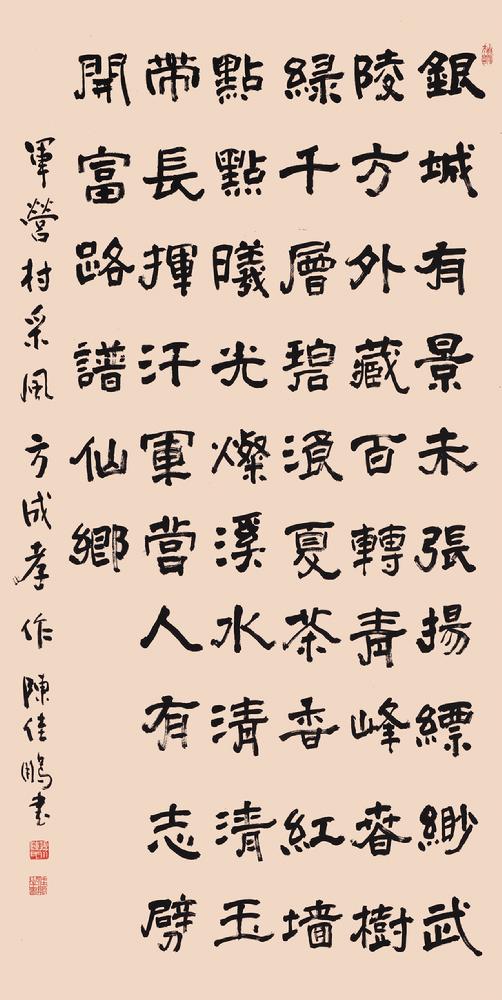 銀城有景未張揚縹緲武
陵方外藏百轉青峰春樹
綠千層碧夏茶香紅墻
點點曦光燦溪水清清玉
帶長揮汗軍營人有志劈
開富路譜仙鄉
軍營村采風方成孝作陳佳鵬書